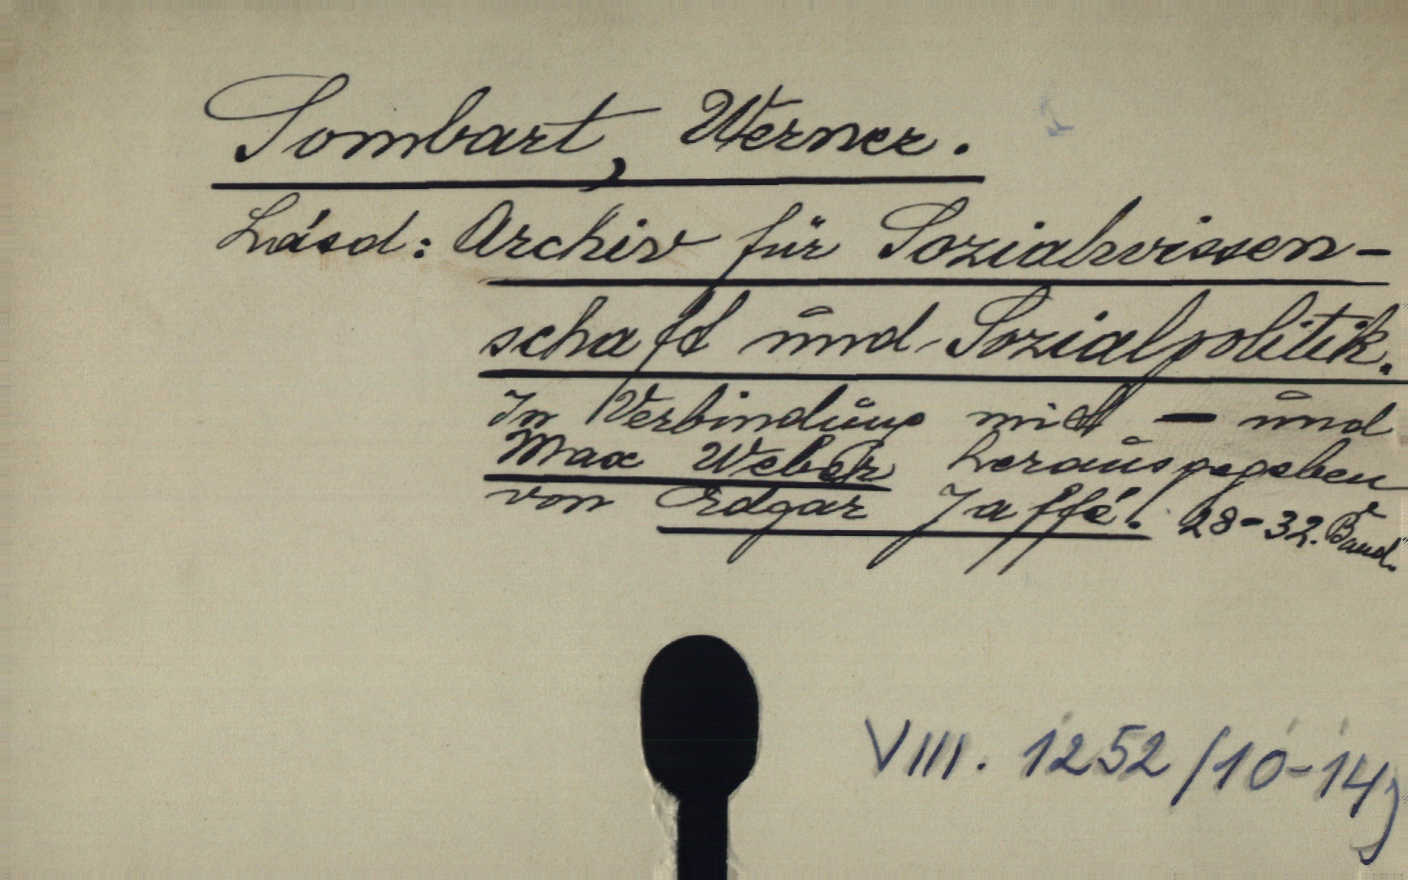 Sombart, Werner.
Lásd: Archiv für Sozialwissen-
schaft und Sozialpolitik.
In Verbindung mit — und
Max Weber herausgegeben
von Edgar Jaffé. 28-32. Band.
VIII. 1252/10-14